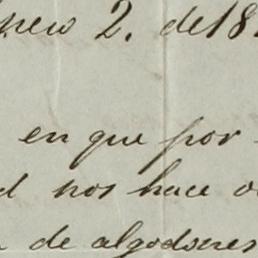 2. de 18
en que por
nos hace
de algodones